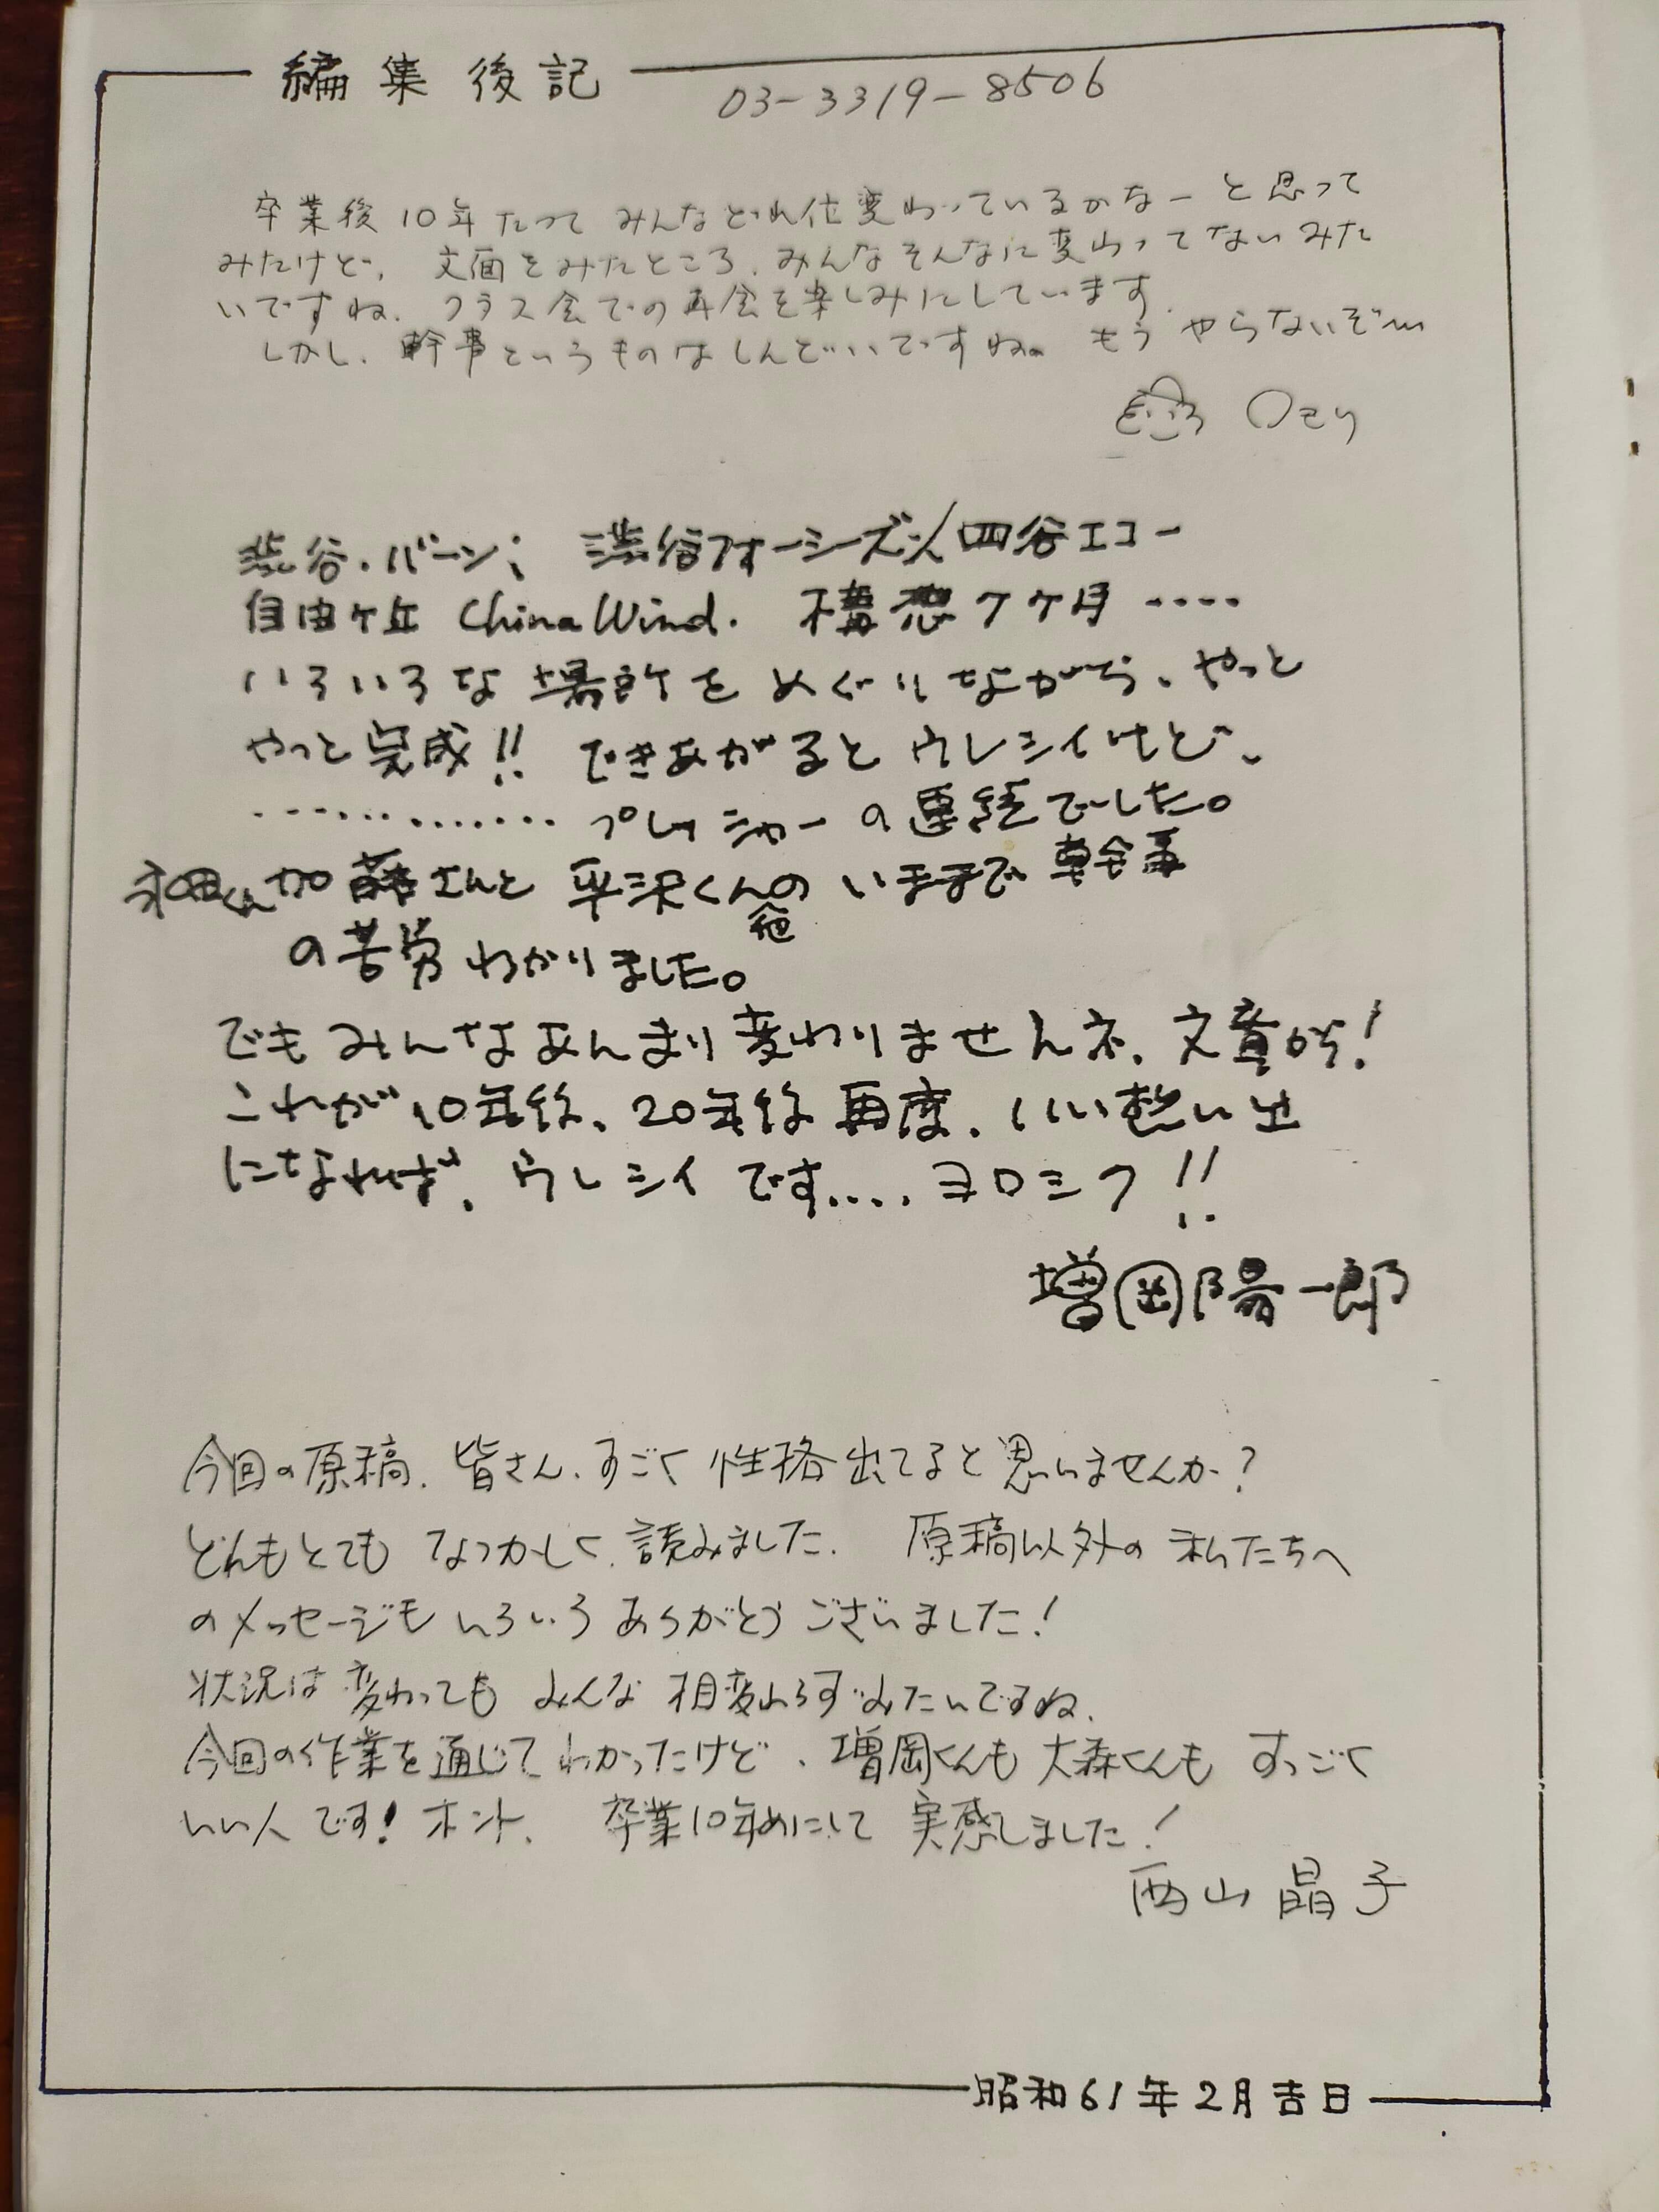 編集後記
03-3319-8506
卒業後10年たって みんなどれ位変わっているかなーと思って
みたけど、文面をみたところ、みんなそんなに変わってないみた
いですね、クラス会での再会を楽しみにしています
しかし、幹事というものはしんどいですね。もう やらないぞ〜
渋谷・バーン; 渋谷フォーシーズン/四谷エコー
自由ヶ丘 China Wind. 構想7ヶ月‥‥
いろいろな場所をめぐりながら、やっと
やっと完成!! できあがるとウレシイけど、
‥‥‥‥‥ プレッシャーの連続でした。
加藤さんと 平沢くん他のいままで幹事
の苦労わかりました。
でもみんなあんまり変わりませんネ、文章から!
これが10年後、20年後再度、いい想い出
になれば、ウレシイです‥‥ヨロシク!!
増岡陽一郎
今回の原稿、皆さん、すごく性格出てると思いませんか?
どんもとても なつかしく、読みました. 原稿以外の私たちへ
のメッセージも いろいろ ありがとう ございました!
状況は変わっても みんな 相変わらずみたいですね、
今回の作業を通じて わかったけど、増岡くんも 大森くんも すっごく
いい人です! ホント、 卒業10年めにして 実感しました!
西山晶子
昭和61年2月吉日